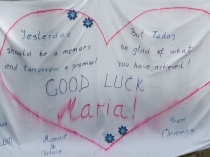 Yesterday
should be a memory
and tomorrow a promise!
But Today
be glad of what
you have achieved!
GOOD LUCK
Maria!
from
Clemens